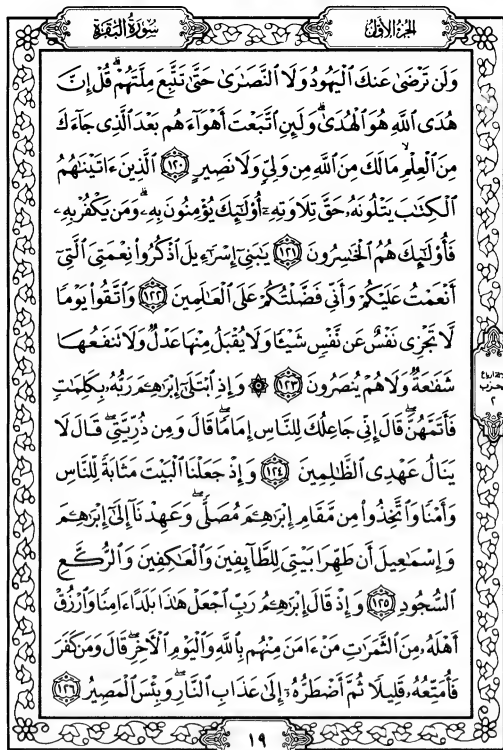 الجزء الأول
سورة البقرة
وَلَن تَرْضَىٰ عَنكَ ٱلْيَهُودُ وَلَا ٱلنَّصَٰرَىٰ حَتَّىٰ تَتَّبِعَ مِلَّتَهُمْ ۗ قُلْ إِنَّ
هُدَى ٱللَّهِ هُوَ ٱلْهُدَىٰ ۗ وَلَئِنِ ٱتَّبَعْتَ أَهْوَآءَهُم بَعْدَ ٱلَّذِى جَآءَكَ
مِنَ ٱلْعِلْمِ ۙ مَا لَكَ مِنَ ٱللَّهِ مِن وَلِىٍّ وَلَا نَصِيرٍ ١٢٠ ٱلَّذِينَ ءَاتَيْنَٰهُمُ
ٱلْكِتَٰبَ يَتْلُونَهُۥ حَقَّ تِلَاوَتِهِۦٓ أُو۟لَٰٓئِكَ يُؤْمِنُونَ بِهِۦ ۗ وَمَن يَكْفُرْ بِهِۦ
فَأُو۟لَٰٓئِكَ هُمُ ٱلْخَٰسِرُونَ ١٢١ يَٰبَنِىٓ إِسْرَٰٓءِيلَ ٱذْكُرُوا۟ نِعْمَتِىَ ٱلَّتِىٓ
أَنْعَمْتُ عَلَيْكُمْ وَأَنِّى فَضَّلْتُكُمْ عَلَى ٱلْعَٰلَمِينَ ١٢٢ وَٱتَّقُوا۟ يَوْمًا
لَّا تَجْزِى نَفْسٌ عَن نَّفْسٍ شَيْـًٔا وَلَا يُقْبَلُ مِنْهَا عَدْلٌ وَلَا تَنفَعُهَا
شَفَٰعَةٌ وَلَا هُمْ يُنصَرُونَ ١٢٣ ۞ وَإِذِ ٱبْتَلَىٰٓ إِبْرَٰهِـۧمَ رَبُّهُۥ بِكَلِمَٰتٍ
فَأَتَمَّهُنَّ ۖ قَالَ إِنِّى جَاعِلُكَ لِلنَّاسِ إِمَامًا ۖ قَالَ وَمِن ذُرِّيَّتِى ۖ قَالَ لَا
يَنَالُ عَهْدِى ٱلظَّٰلِمِينَ ١٢٤ وَإِذْ جَعَلْنَا ٱلْبَيْتَ مَثَابَةً لِّلنَّاسِ
وَأَمْنًا وَٱتَّخِذُوا۟ مِن مَّقَامِ إِبْرَٰهِـۧمَ مُصَلًّى ۖ وَعَهِدْنَآ إِلَىٰٓ إِبْرَٰهِـۧمَ
وَإِسْمَٰعِيلَ أَن طَهِّرَا بَيْتِىَ لِلطَّآئِفِينَ وَٱلْعَٰكِفِينَ وَٱلرُّكَّعِ
ٱلسُّجُودِ ١٢٥ وَإِذْ قَالَ إِبْرَٰهِـۧمُ رَبِّ ٱجْعَلْ هَٰذَا بَلَدًا ءَامِنًا وَٱرْزُقْ
أَهْلَهُۥ مِنَ ٱلثَّمَرَٰتِ مَنْ ءَامَنَ مِنْهُم بِٱللَّهِ وَٱلْيَوْمِ ٱلْـَٔاخِرِ ۖ قَالَ وَمَن كَفَرَ
فَأُمَتِّعُهُۥ قَلِيلًا ثُمَّ أَضْطَرُّهُۥٓ إِلَىٰ عَذَابِ ٱلنَّارِ ۖ وَبِئْسَ ٱلْمَصِيرُ ١٢٦
٢
١٩